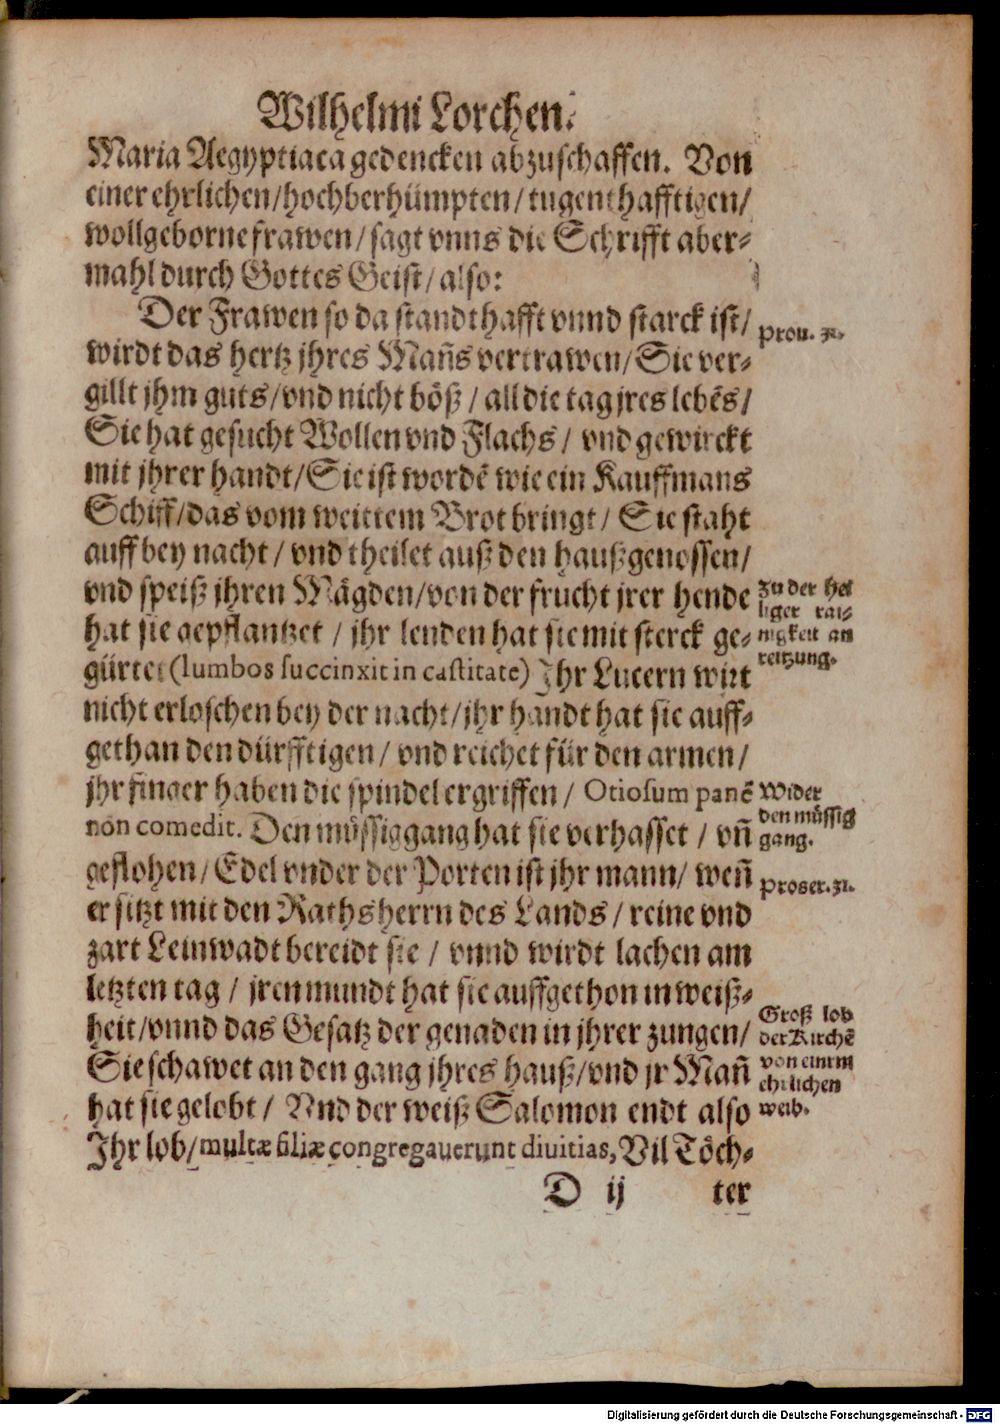 Wilhelmi Lorchen.
Maria Aegyptiaca gedencken abzuschaffen. Von
einer ehrlichen/hochberhümpten/tugenthafftigen/
wollgeborne frawen/sagt vnns die Schrifft aber-
mahl durch Gottes Geist/also:
Der Frawen so da standthafft vnnd starck ist/
Prou. 31.
wirdt das hertz jhres Mañs vertrawen/Sie ver-
gillt jhm guts/vnd nicht böß/all die tag jres lebēs/
Sie hat gesucht Wollen vnd Flachs/ vnd gewirckt
mit jhrer handt/Sie ist wordē wie ein Kauffmans
Schiff/das vom weittem Brot bringt/ Sie staht
auff bey nacht/ vnd theilet auß den haußgenossen/
vnd speiß jhren Mägden/von der frucht jrer hende
hat sie gepflantzet / jhr lenden hat sie mit sterck ge-
gürtet (lumbos succinxit in castitate) Jhr Lucern wirt
Zu der hei
liger rai-
nigkeit an
reitzung.
nicht erloschen bey der nacht/jhr handt hat sie auff-
gethan den dürfftigen/ vnd reichet für den armen/
jhr finger haben die spindel ergriffen/ Otiosum panē
non comedit. Den müssiggang hat sie verhasset / vñ
Wider
den müssig
gang.
geflohen/Edel vnder der Porten ist jhr mann/ weñ
Prouer. 31.
er sitzt mit den Rathsherrn des Lands/ reine vnd
zart Leinwadt bereidt sie / vnnd wirdt lachen am
letzten tag / jren mundt hat sie auffgethon in weiß-
heit/vnnd das Gesatz der genaden in jhrer zungen/
Sie schawet an den gang jhres hauß/vnd jr Mañ
hat sie gelobt/ Vnd der weiß Salomon endt also
Groß lob
der Kirchē
von einem
ehrlichen
weib.
Jhr lob/multæ filiæ congregauerunt diuitias, Vil Töch-
D ij ter
Digitalisierung gefördert durch die Deutsche Forschungsgemeinschaft - DFG